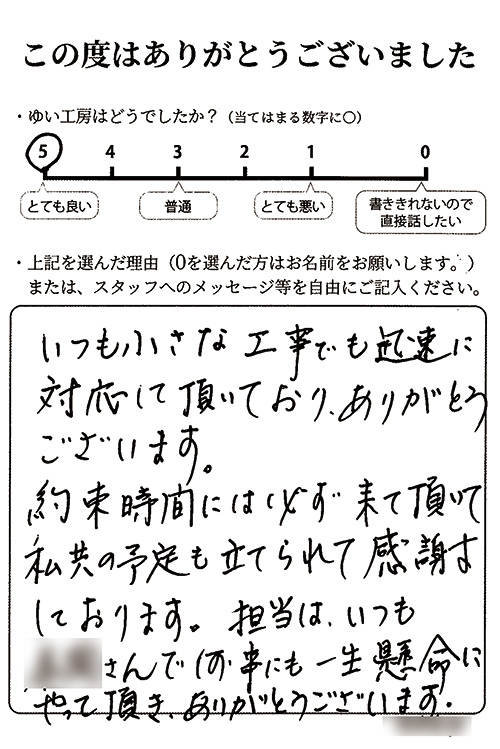 この度はありがとうございました
・ゆい工房はどうでしたか？（当てはまる数字に〇）
5 4 3 2 1 0
とても良い 普通 とても悪い 書ききれないので
直接話したい
・上記を選んだ理由（0を選んだ方はお名前をお願いします。）
または、スタッフへのメッセージ等を自由にご記入ください。
いつも小さな工事でも迅速に
対応して頂いており、ありがとう
ございます。
約束時間には必ず来て頂いて
私共の予定も立てられて感謝ま
しております。担当は、いつも
さんですが、仕事にも一生懸命に
やって頂き、ありがとうございます。